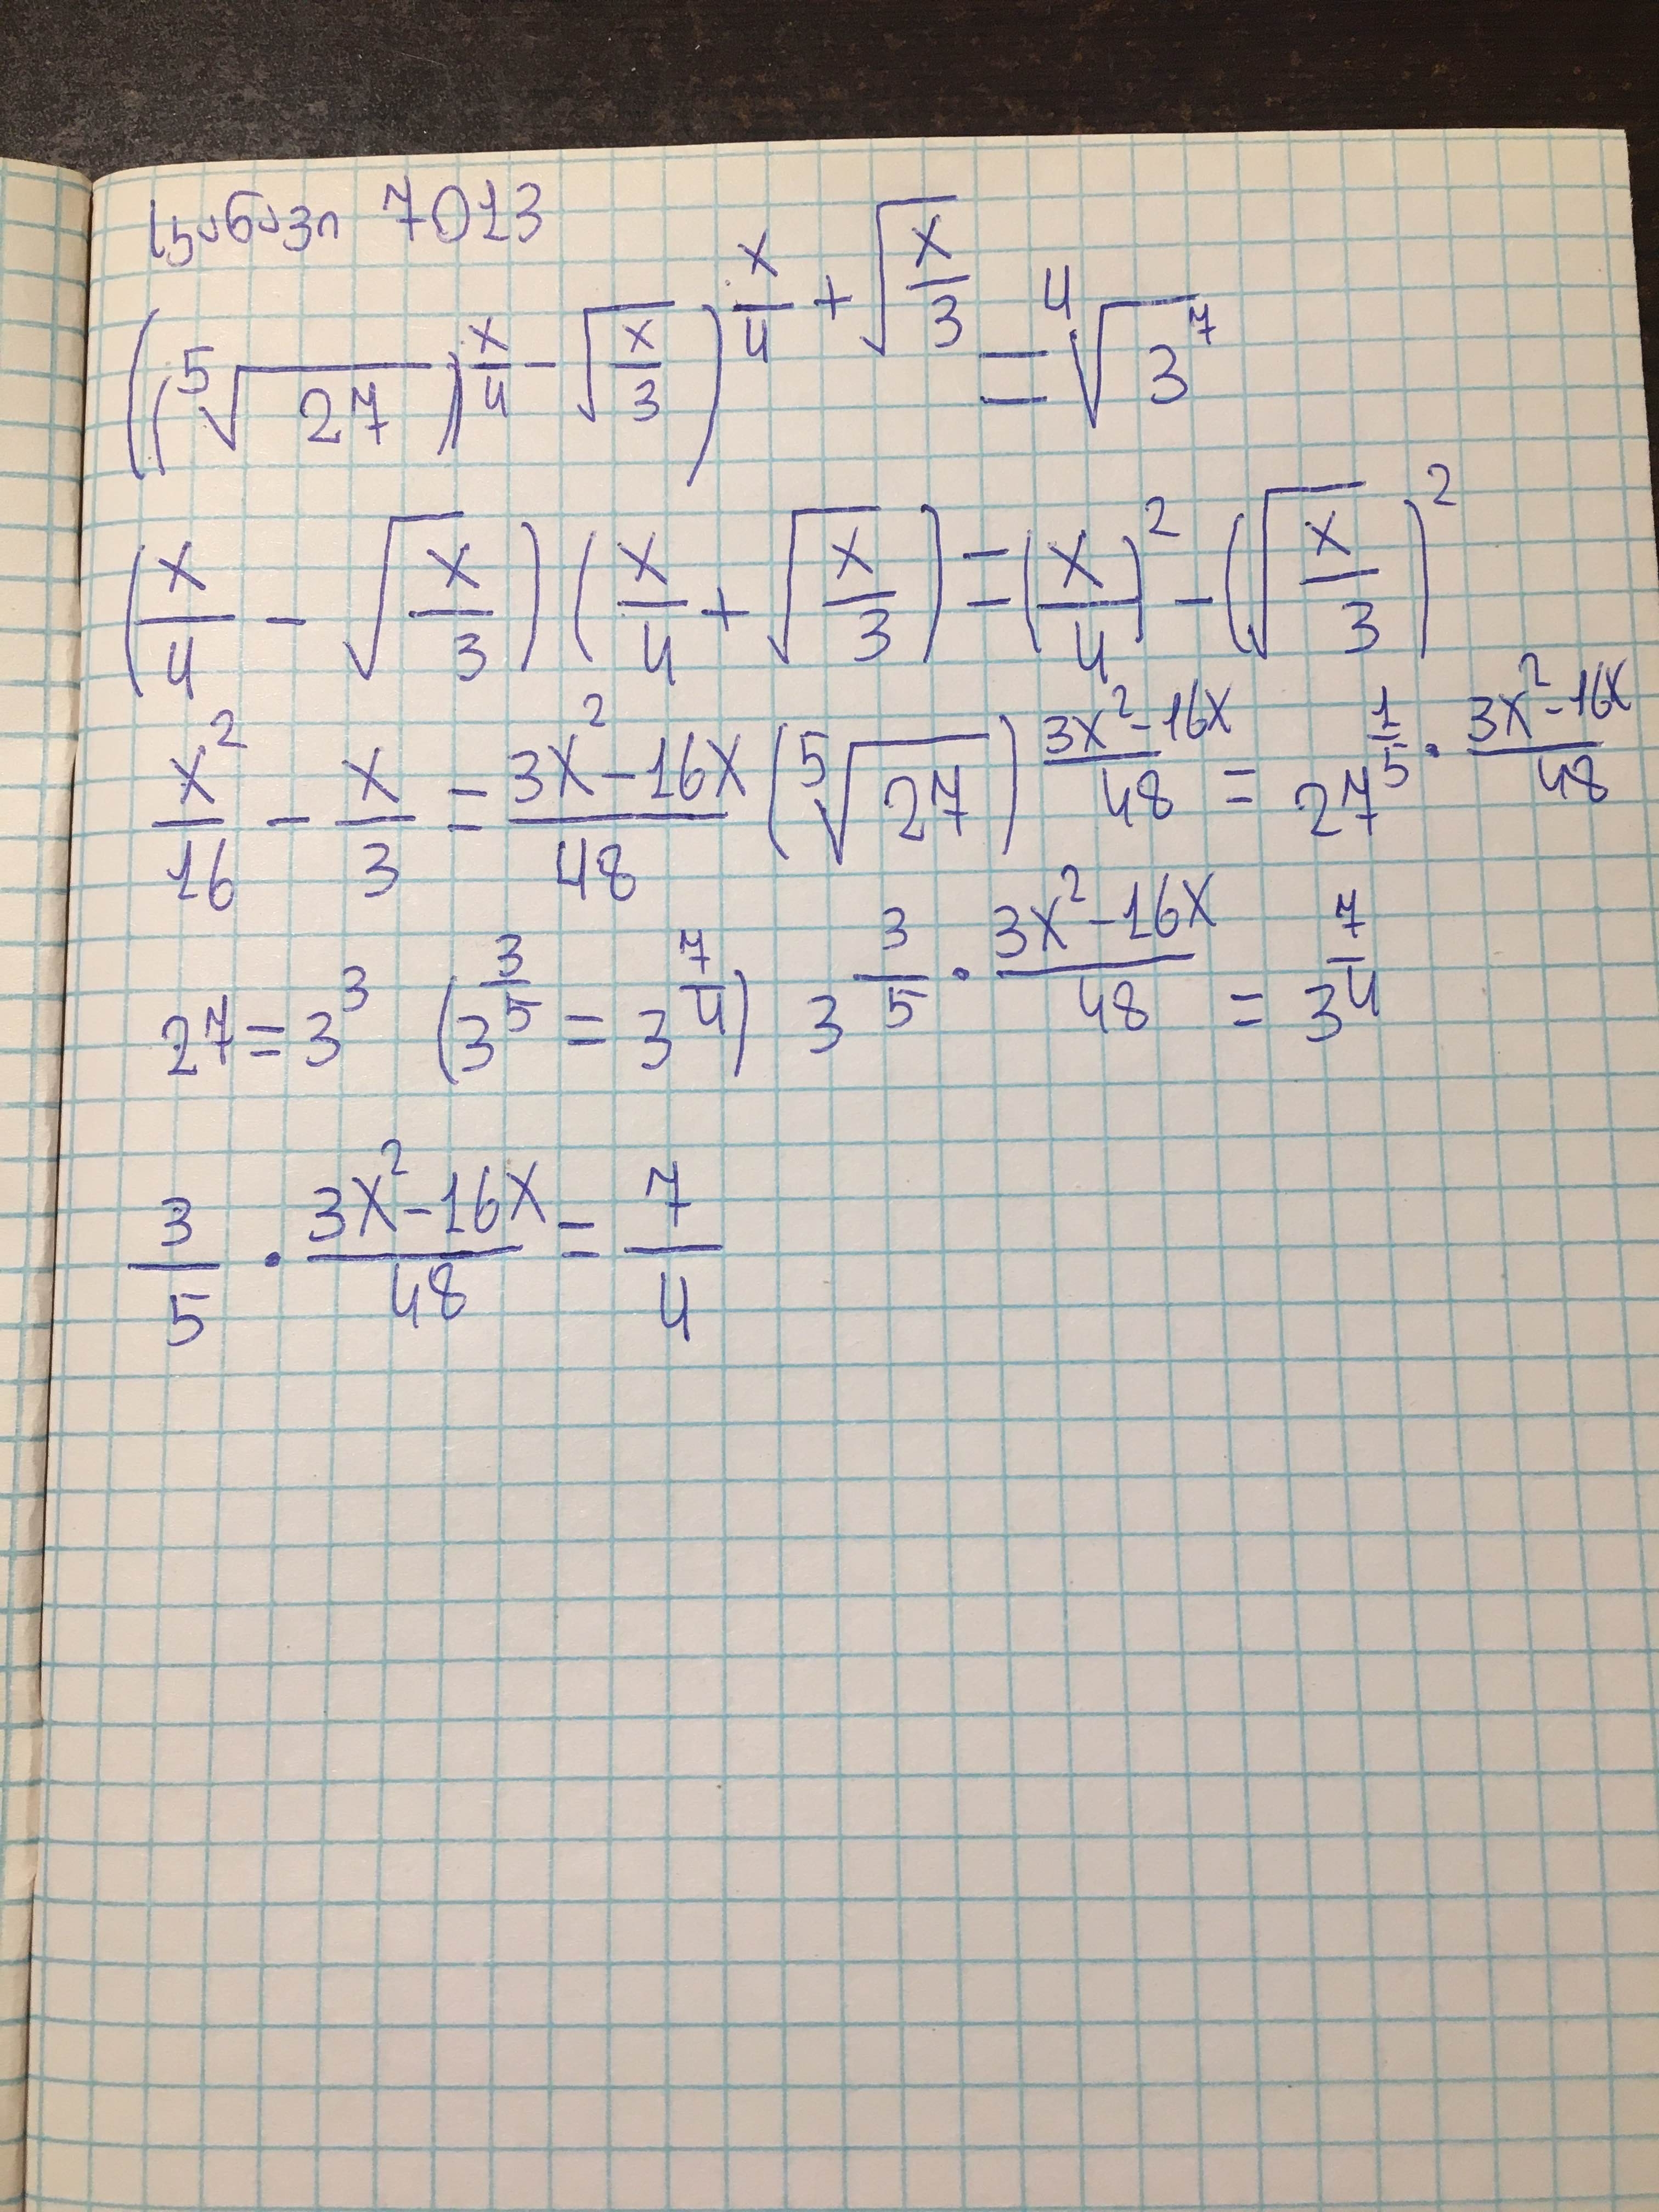 სანავი 7013
((⁵√27)^(x/4 - √(x/3)))^(x/4 + √(x/3)) = ⁴√(3⁷)
(x/4 - √(x/3)) (x/4 + √(x/3)) = (x/4)² - (√(x/3))²
x²/16 - x/3 = (3x² - 16x)/48 (⁵√27)^((3x² - 16x)/48) = 27^(1/5 · (3x² - 16x)/48)
27 = 3³ (3^(3/5) = 3^(7/4)) 3^(3/5 · (3x² - 16x)/48) = 3^(7/4)
3/5 · (3x² - 16x)/48 = 7/4